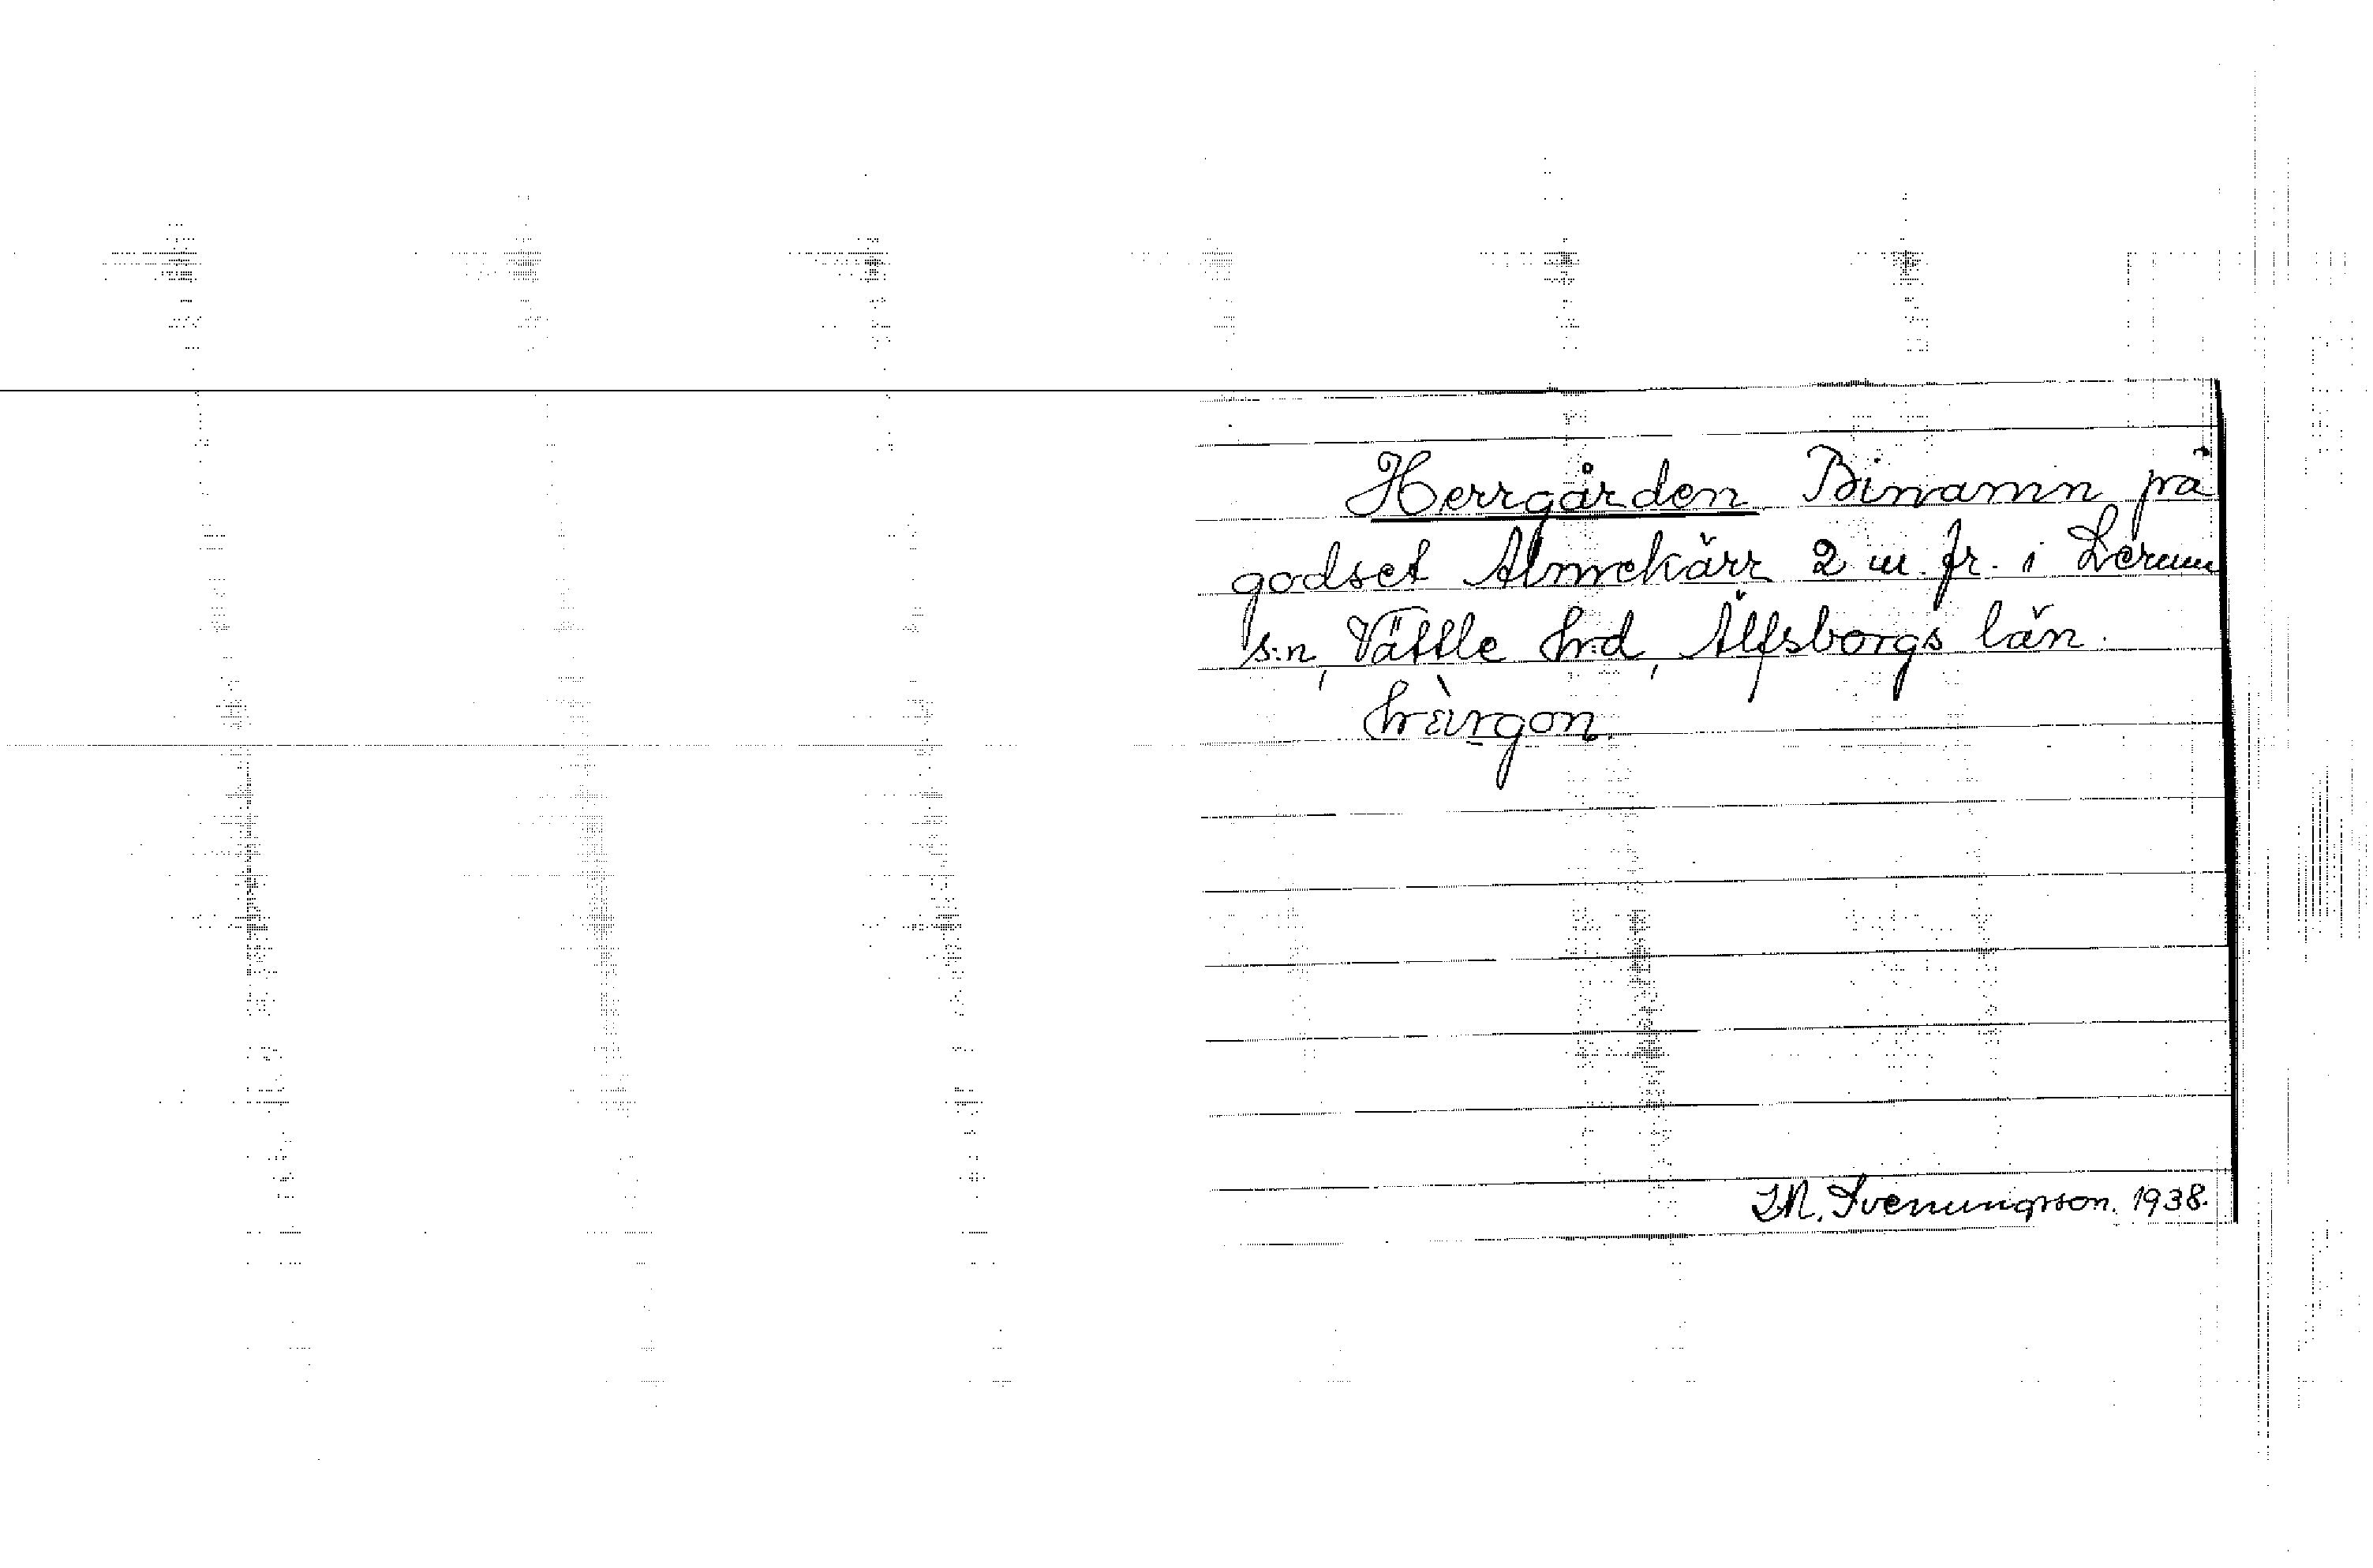 Herrgården Binamn på
godset Almekärr 2 m. fr. i Lerum
s:n, Vättle hd, Älfsborgs län.
M. Svenungsson. 1938.